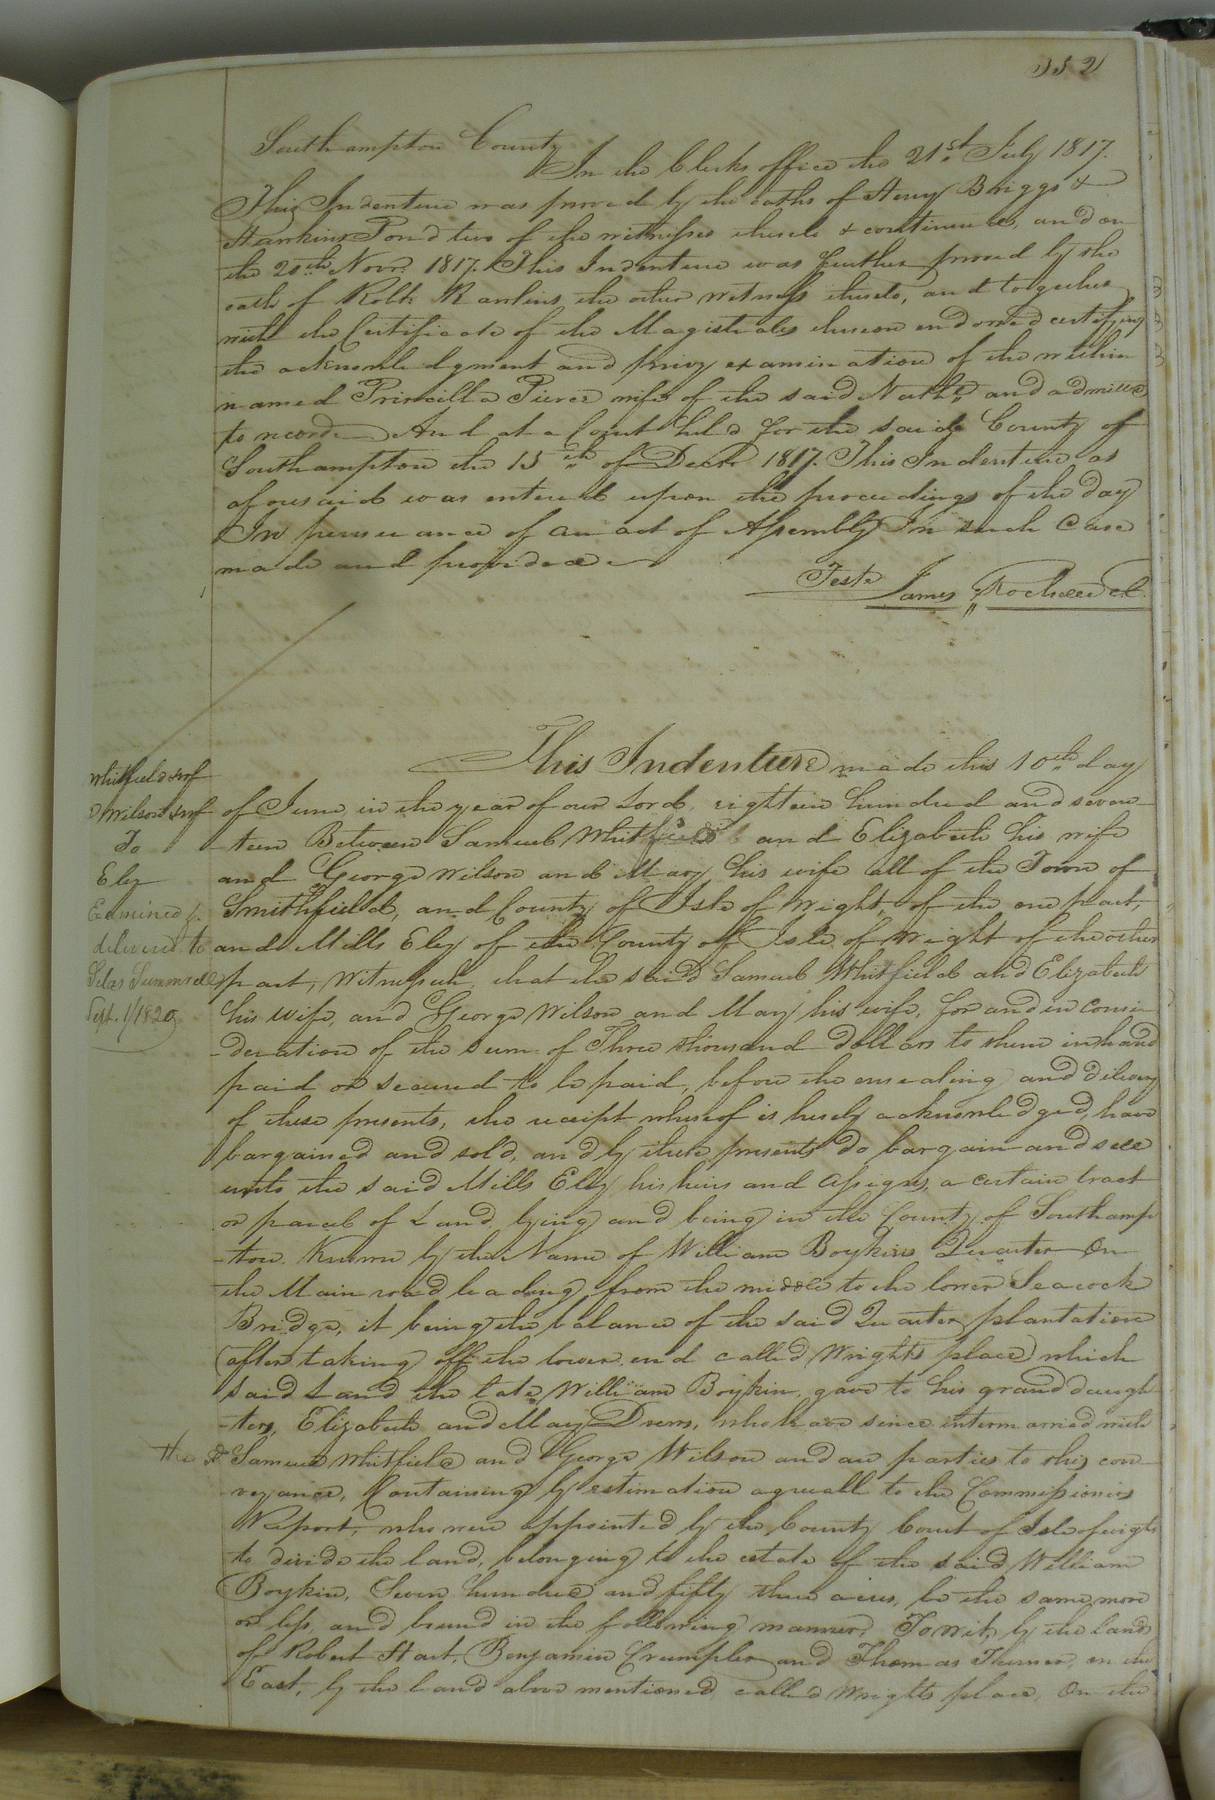 352
Southampton County
In the Clerks office the 21st July 1817.
This Indenture was proved by the oaths of Henry Briggs &
Hawkins Pond two of the witnesses thereto & continued, and on
the 20th Novr. 1817. This Indenture was further proved by the
oath of Robt. Rawlins the other witness thereto, and together
with the Certificate of the Magistrates thereon endorsed certifying
the acknowledgment and privy examination of the within
named Priscilla Pierce wife of the said Nathl. and admitted
to record And at a Court held for the said County of
Southampton the 15th of Decr. 1817. This Indenture as
aforesaid was entered upon the proceedings of the day
In persuance of an act of Assembly In such Case
made and provided
Teste
James Rochelle Cl.
This Indenture made this 10th day
Whitfield & wf
& Wilson & wf
To
Eley
Examined &
delivered to
Silas Summerell
Sept. 1/1820
of June in the year of our Lord, eighteen hundred and seven-
-teen Between Samuel Whitfield and Elizabeth his wife
and George Wilson and Mary his wife all of the Town of
Smithfield, and County of Isle of Wight, of the one part,
and Mills Eley of the County of Isle of Wight of the other
part, Witnesseth, that the said Samuel Whitfield and Elizabeth
his wife, and George Wilson and Mary his wife, for and in consi-
-deration of the sum of Three thousand dollars to them in hand
paid or secured to be paid, before the ensealing and delivery
of these presents, the receipt whereof is hereby acknowledged, have
bargained and sold, and by these presents do bargain and sell
unto the said Mills Eley his heirs and assigns, a certain tract
or parcel of Land lying and being in the County of Southamp
-ton Known by the Name of William Boykins Quarter On
the Main road leading from the middle to the lower Seacock
Bridge, it being the balance of the said Quarter plantation
(after taking off the lower end called Wrights place) which
said Land the late William Boykin gave to his grand daugh
-ters, Elizabeth and Mary Drew, who have since intermarried with
the & Samuel Whitfield and George Wilson and are parties to this con-
veyance, Containing by estimation agreeable to the Commissioners
Report, who were appointed by the County Court of Isle of wight
to divide the land, belonging to the estate of the said William
Boykin, Seven hundred and fifty three acres, be the same more
or less, and bound in the following manner, To wit, by the Land
of Robert Hart, Benjamin Crumpler and Thomas Turner, on the
East, by the land above mentioned called Wrights place, On the